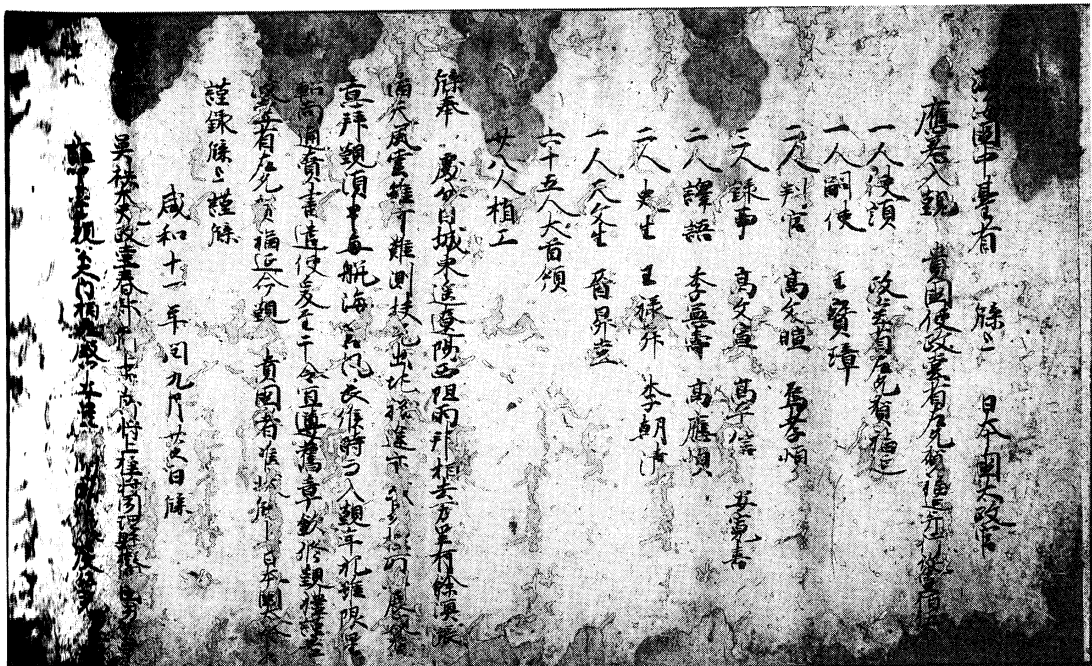 渤海國中臺省 牒上 日本國太政官
應差入覲 貴國使政堂省左允賀福延并行從壹佰
一人使頭 政堂省左允賀福延
一人嗣使 王寶璋
二人判官 高文暄 烏孝慎
三人録事 高文宣 高平信 安寛喜
二人譯語 李憲壽 高應順
二人史生 王禄昇 李朝清
一人天文生 晋昇堂
六十五人大首領
廿八人梢工
牒奉 處分日域東遥遼陽西阻兩邦相去万里有餘溟漲
滔天風雲雖可難測扶光出地程途亦或易標所以展親舊
意拝覲須申毎航海以占風長候時而入覲年祀雖限星
軺尚通賚書遣使爰至于今宜遵舊章欽修覲禮謹差
政堂省左允賀福延令覲 貴國者准状牒上日本國太政
謹録牒上謹牒
咸和十一年閏九月廿五日牒
呉秩大夫政堂春部卿上中郎将上柱将聞理縣擬開國男
中臺親公大内相兼殿中安豊縣開國公